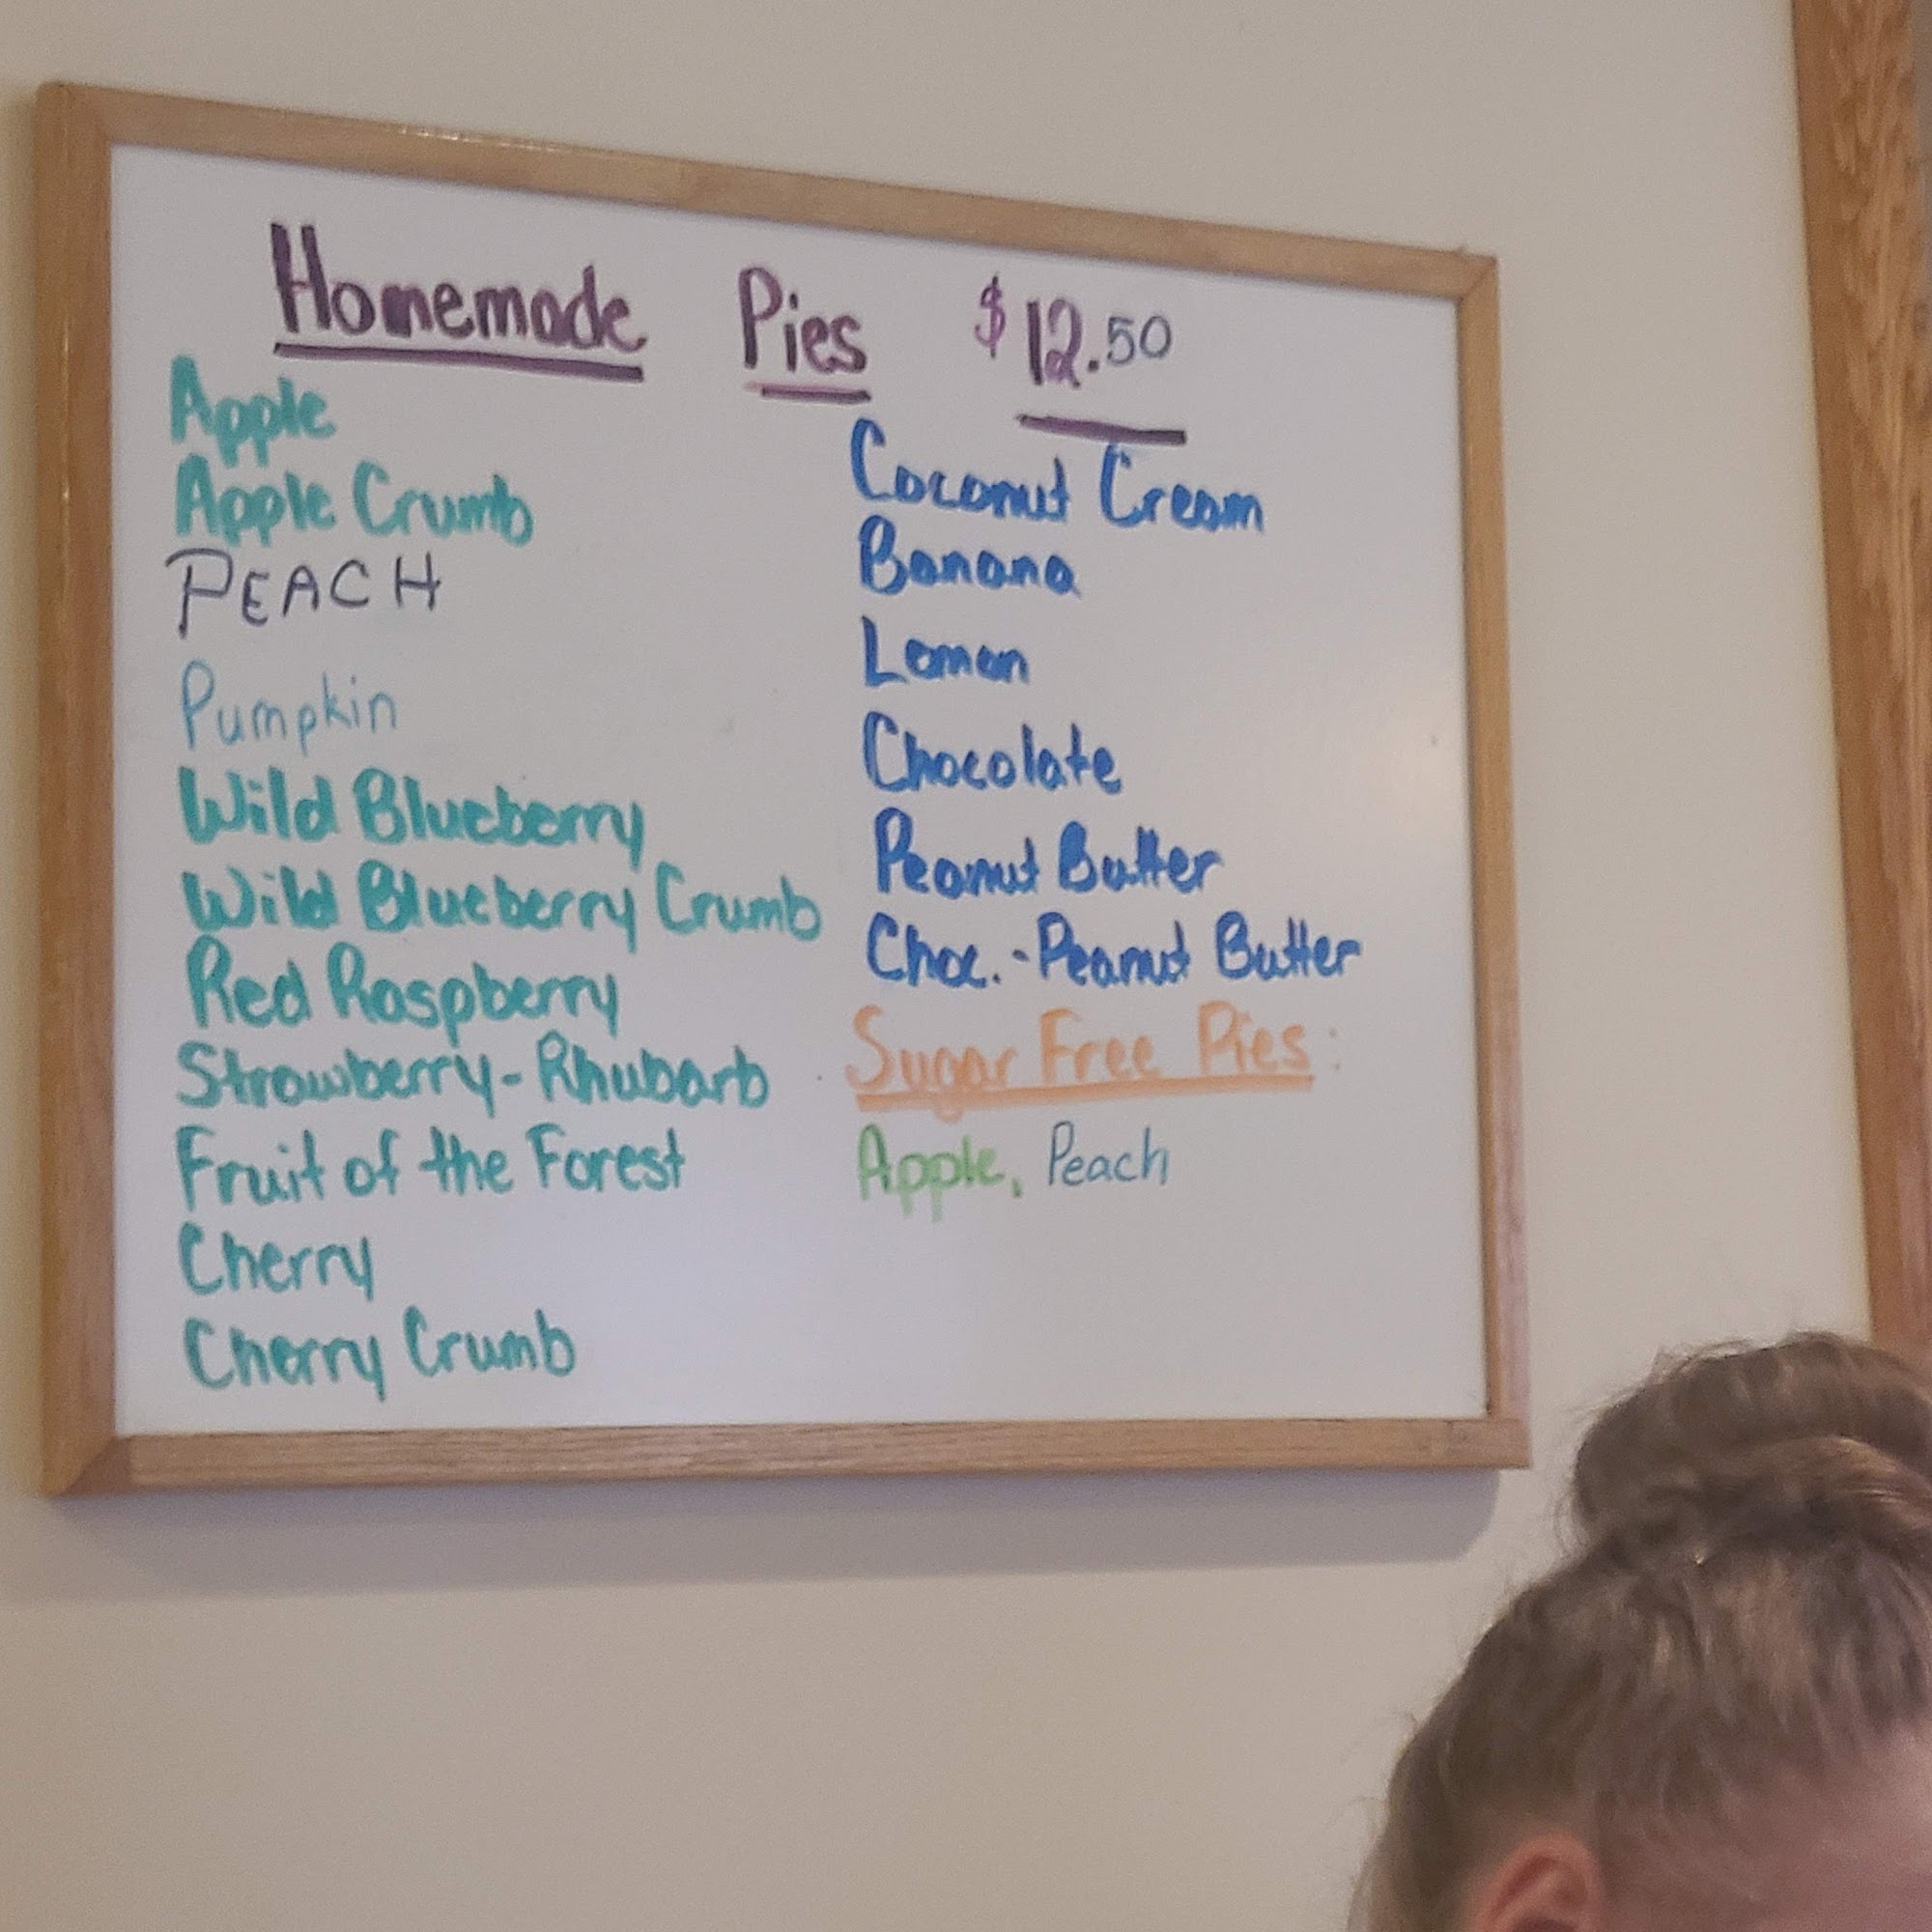 Homemade Pies $12.50
Apple
Apple Crumb
PEACH
Pumpkin
Wild Blueberry
Wild Blueberry Crumb
Red Raspberry
Strawberry-Rhubarb
Fruit of the Forest
Cherry
Cherry Crumb
Coconut Cream
Banana
Lemon
Chocolate
Peanut Butter
Choc.-Peanut Butter
Sugar Free Pies:
Apple, Peach